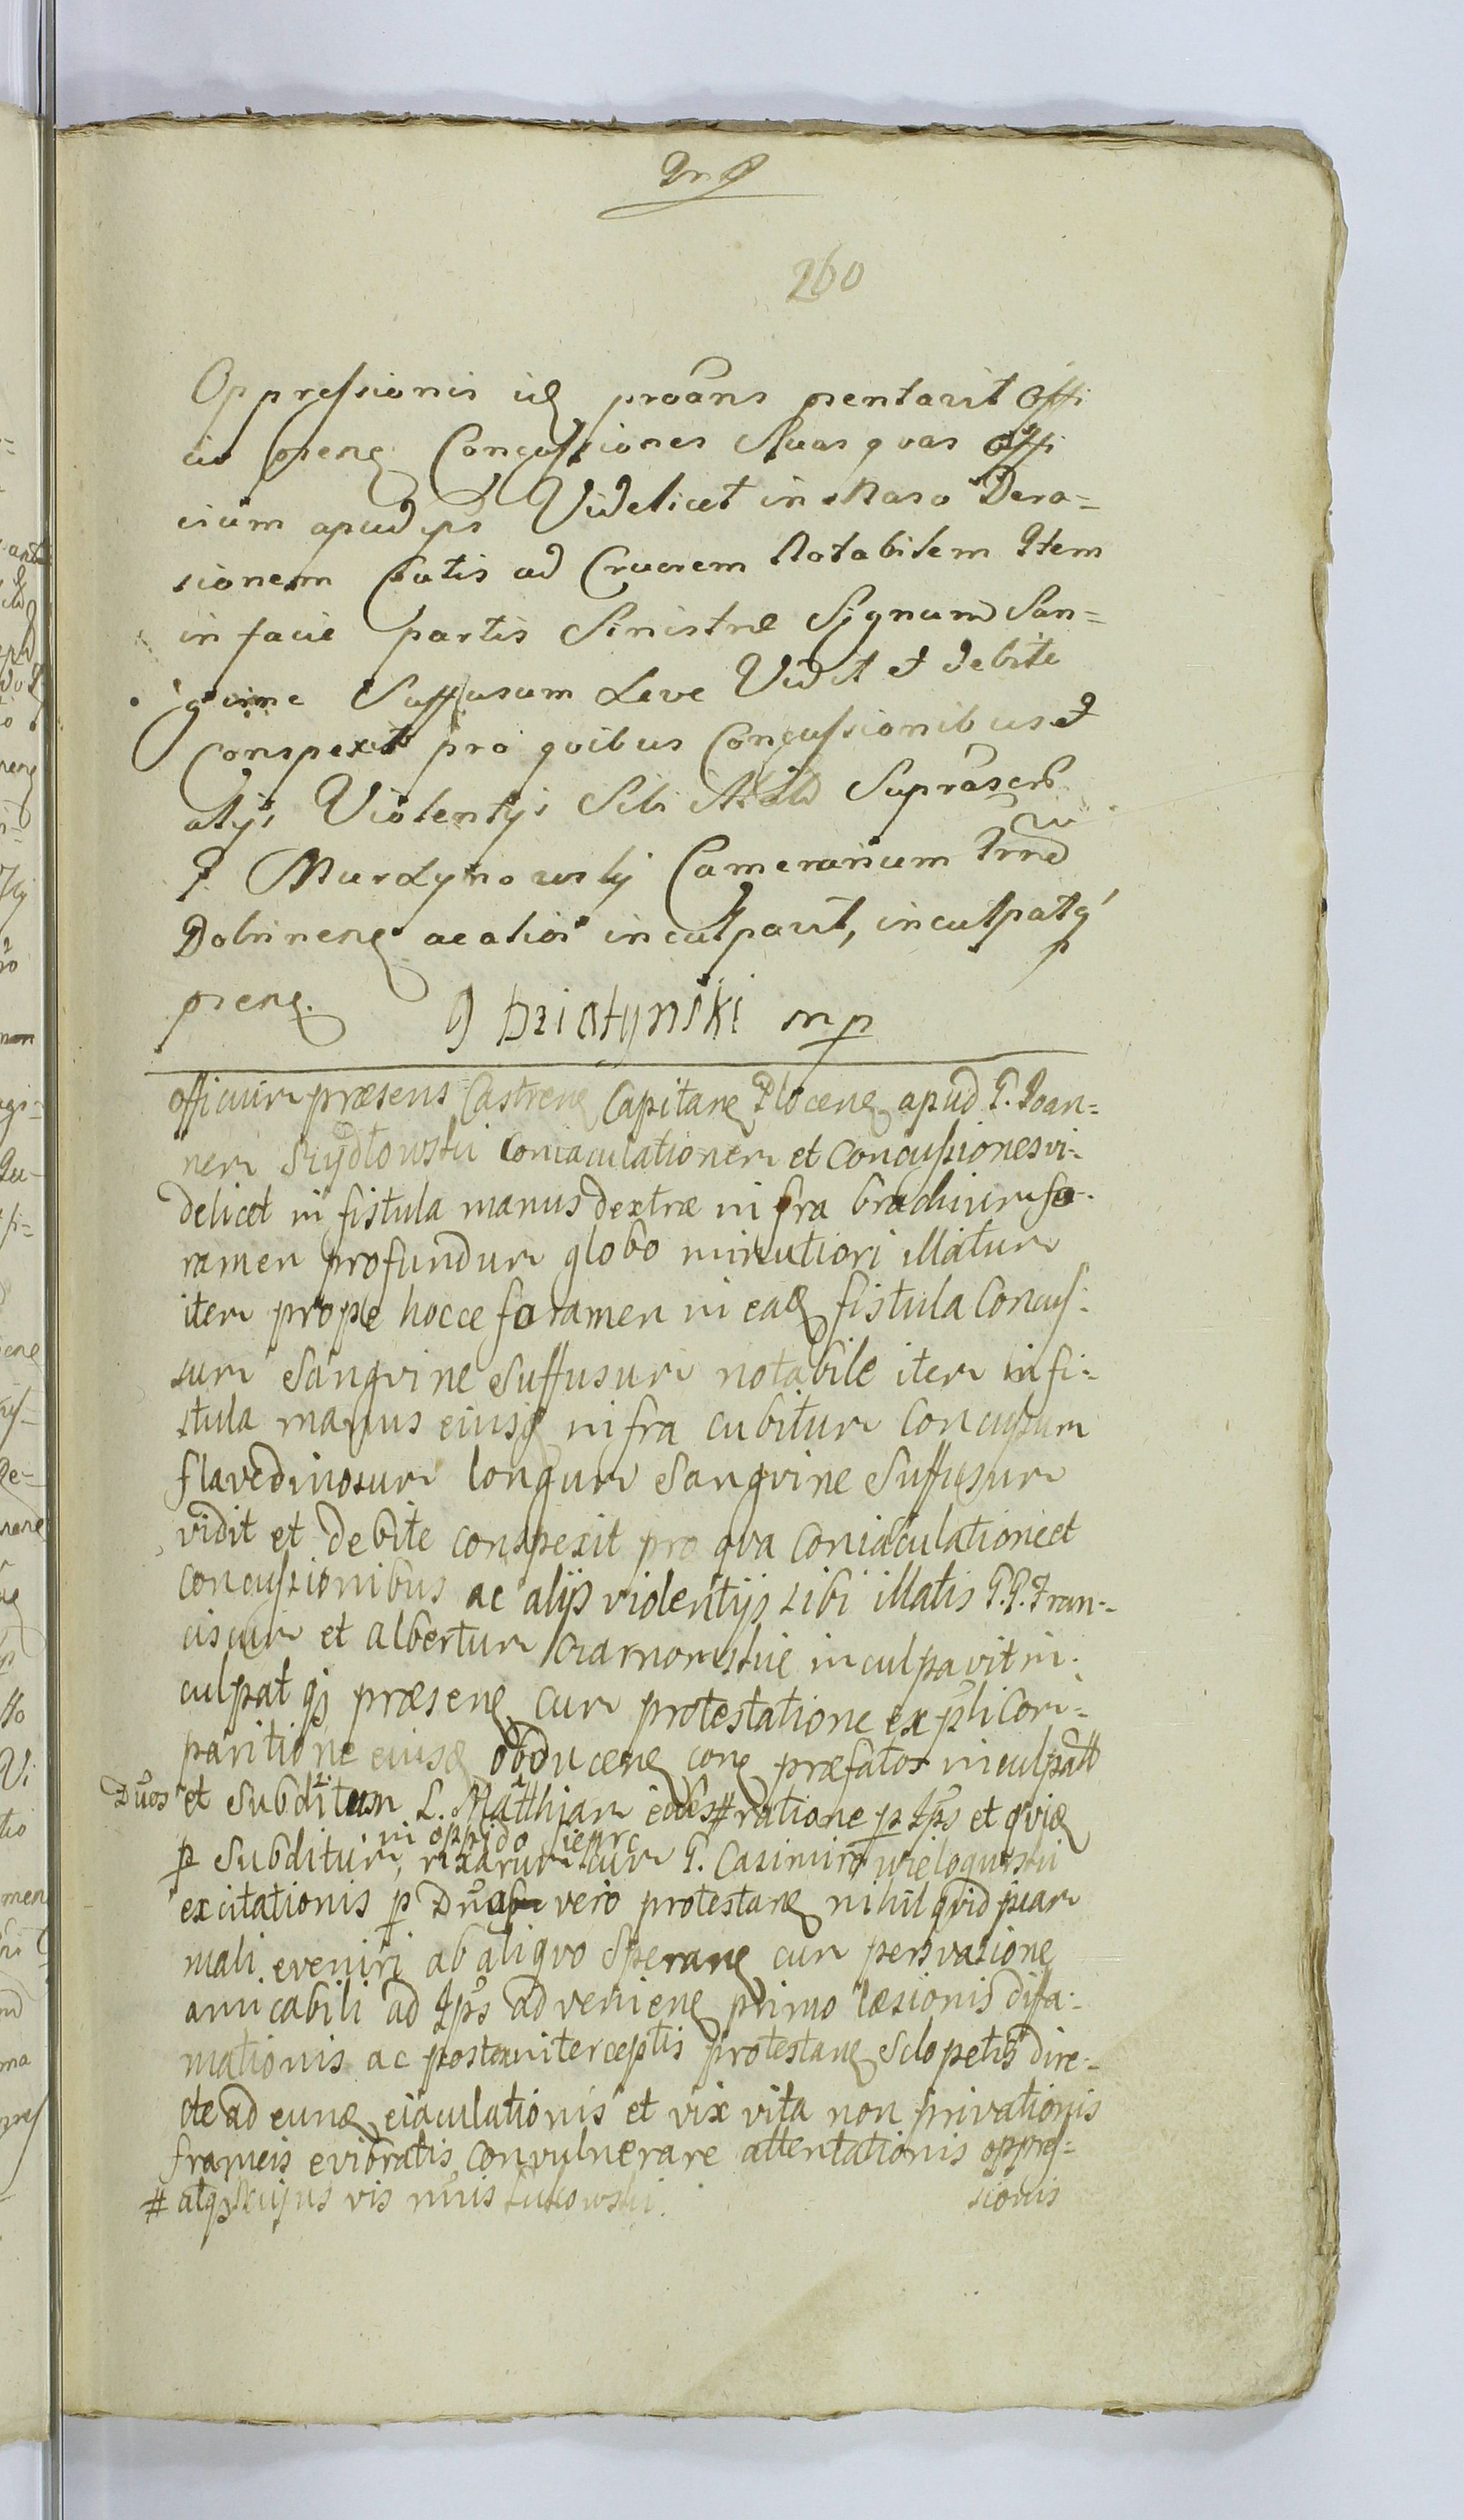 260
Oppressionis id proans pentavit Offi
cio pene Concussiones Suas quas offi
cium apud ips Videlicet in Naso Dera-
sionem Cutis ad Cruorem Notabilem Item
in facie partis Sinistræ Signum San-
gvine Suffusum Leve Vidit et debite
conspexit pro quibus Concussionibus et
alijs Violentijs Sibi Suprascr
G Murdynowsky Camerarium Trrae
Dobrinen ac alios inculpavit, inculpatq
pene. J Dziatynski mp
officium præsens Castrene Capitane Plocene apud G. Joan-
nem Szydłowski Coniaculationem et Concussiones vi-
delicet in fistula manus dextræ infra brachium fo-
ramen profundum globo minutiori illatum
item prope hocce foramen in ead fistula Concus-
sum Sangvine Suffusum notabile item in fi-
stula manus eiusd infra cubitum Concussum
flavedinosum longum Sangvine Suffusum
vidit et debite conspexit pro qva Coniaculatione et
concussionibus ac alijs violentijs sibi illatis G.G. Fran-
ciscum et Albertum inculpavit in-
culpatq præsene cum protestatione expli Com-
paritione eiusd obducene cone præfatos inculpatt
Dnos et Subditum L. Matthiam # ratione p Ips et qviæ
in oppido
p Subditum, rixarum cum G. Casimiro
excitationis p vero protestane nihil qvidpiam
mali eveniri ab aliqvo Sperane cum persvasione
amicabili ad Ips adveniene primo læsionis difa-
mationis ac postea interceptis protestane Sclopetis dire-
cte ad eund eiaculationis et vix vita non privationis
frameis evibratis convulnerare attentationis oppres-
sionis
# atq huijus vis